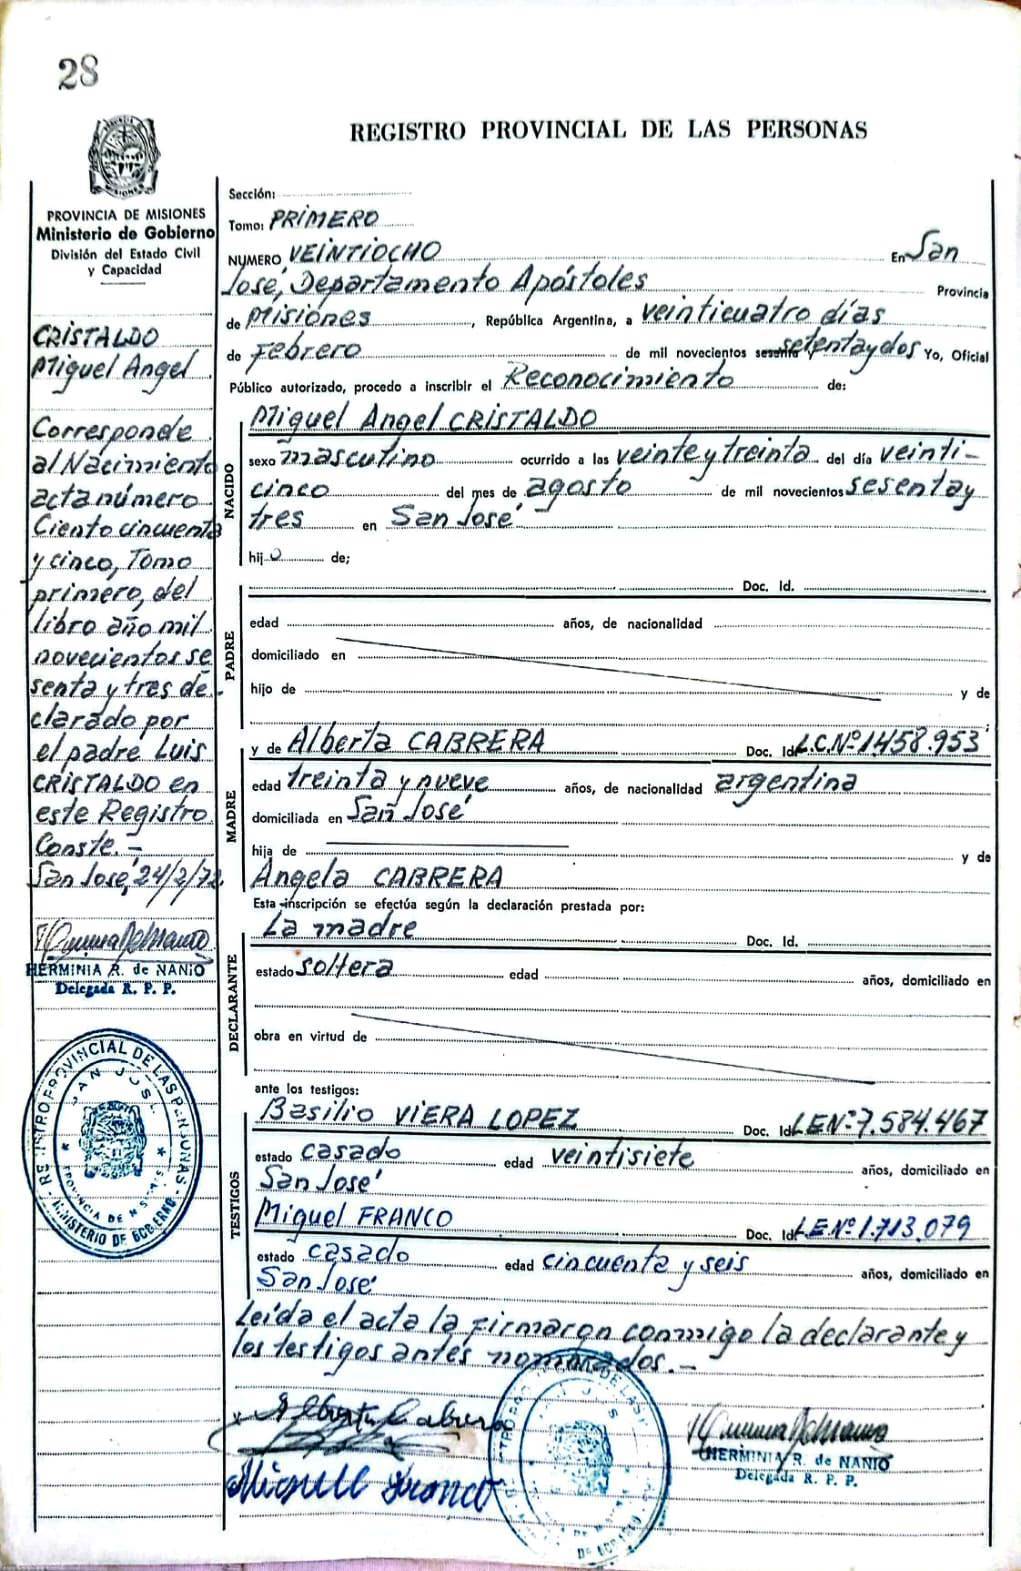 28
REGISTRO PROVINCIAL DE LAS PERSONAS
MISIONES
PROVINCIA DE MISIONES
Ministerio de Gobierno
División del Estado Civil
y Capacidad
CRISTALDO
Miguel Angel
Corresponde
al Nacimiento
acta número
Ciento cincuenta
y cinco, Tomo
primero, del
libro año mil
novecientos se
senta y tres de
clarado por
el padre Luis
CRISTALDO en
este Registro
Conste.-
San José, 24/2/72
HERMINIA R. de NANIO
Delegada R. P. P.
REGISTRO PROVINCIAL DE LAS PERSONAS
SAN JOSE
PROVINCIA DE MISIONES
MINISTERIO DE GOBIERNO
Sección:
Tomo: PRIMERO
NUMERO VEINTIOCHO En San
José, Departamento Apóstoles Provincia
de Misiones, República Argentina, a veinticuatro días
de Febrero de mil novecientos sesenta setentaydos Yo, Oficial
Público autorizado, procedo a inscribir el Reconocimiento de:
NACIDO
Miguel Angel CRISTALDO
sexo masculino ocurrido a las veinte y treinta del día veinti-
cinco del mes de agosto de mil novecientos sesentay
tres en San José
hijo de;
PADRE
Doc. Id.
edad años, de nacionalidad
domiciliado en
hijo de y de
MADRE
y de Alberta CABRERA Doc. Id. L.C.Nº1.458.953
edad treinta y nueve años, de nacionalidad argentina
domiciliada en San José
hija de y de
Angela CABRERA
Esta inscripción se efectúa según la declaración prestada por:
DECLARANTE
La madre Doc. Id.
estado soltera edad años, domiciliado en
obra en virtud de
ante los testigos:
TESTIGOS
Basilio VIERA LOPEZ Doc. Id. L.E.Nº7.584.467
estado casado edad veintisiete años, domiciliado en
San José
Miguel FRANCO Doc. Id. L.E.Nº1.713.079
estado casado edad cincuenta y seis años, domiciliado en
San José
Leída el acta la firmaron conmigo la declarante y
los testigos antes nominados.-
x Alberta Cabrera
Miguell Franco
HERMINIA R. de NANIO
Delegada R. P. P.